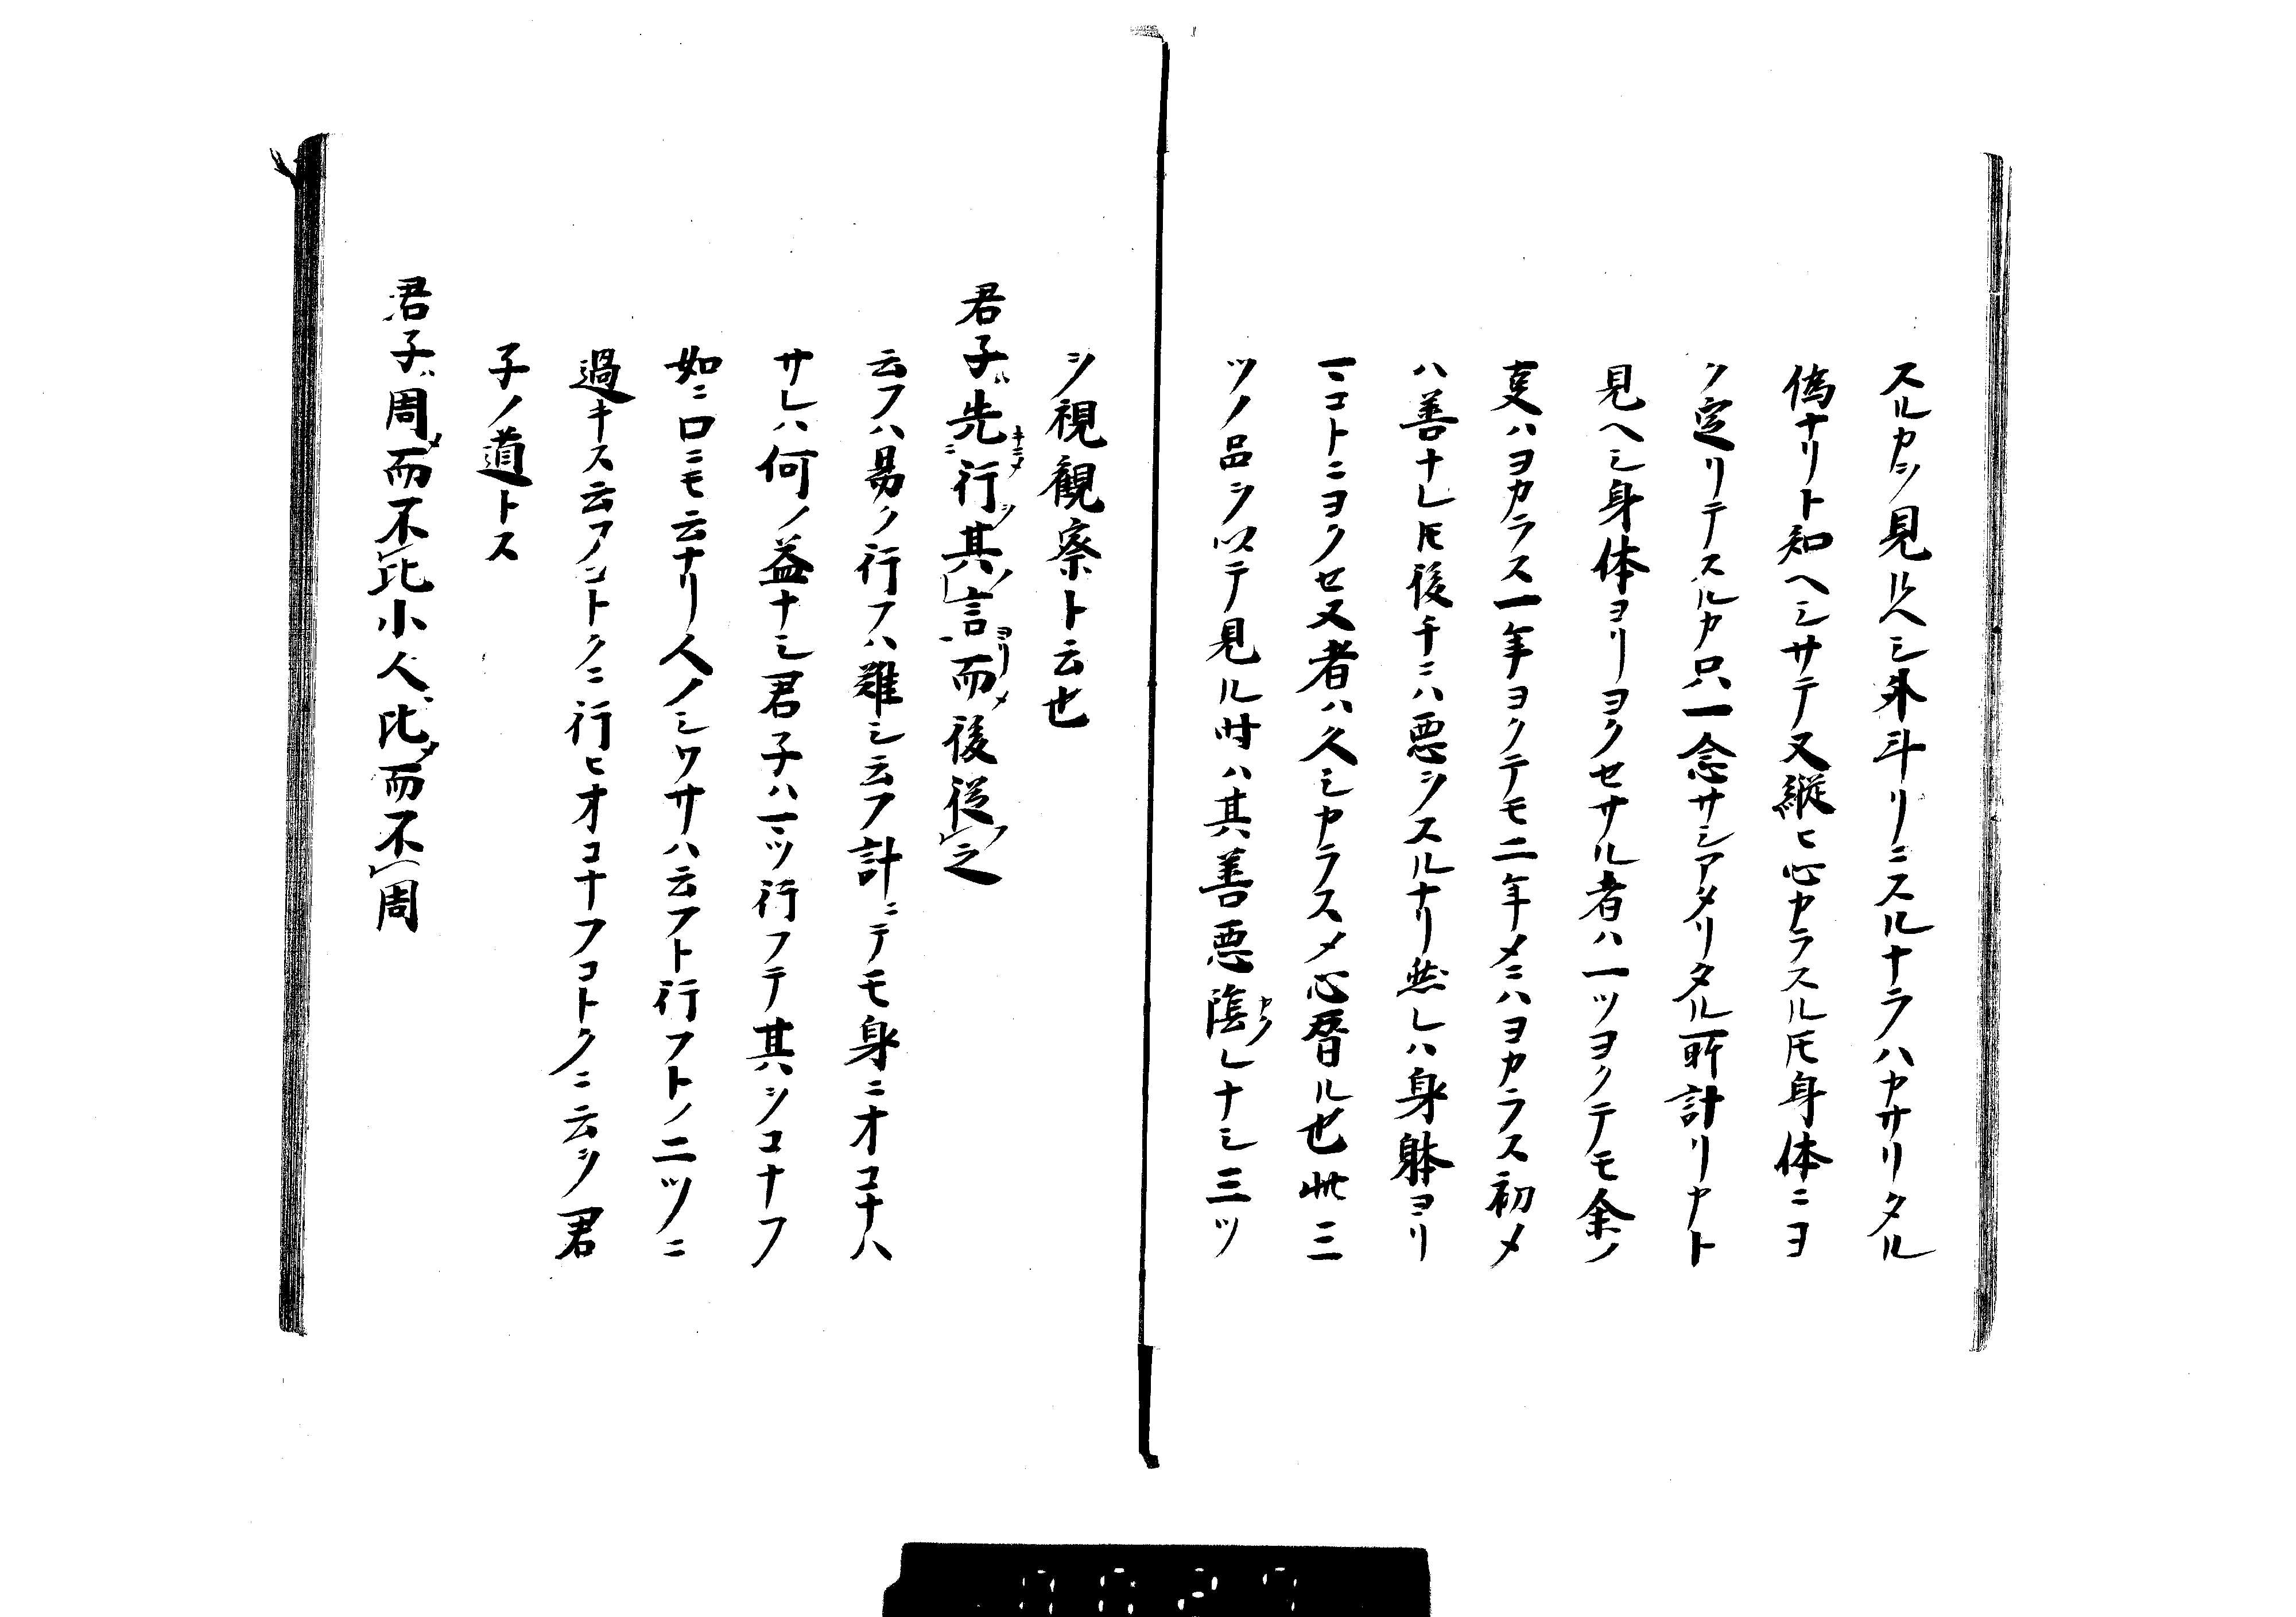 スルカヲ見ルヘシ外斗リニスルナラハヤサリタル
偽ナリト知ヘシサテ又縦ヒ心カラスルトモ身体ニヨ
ク定リテスルカ只一念サシアタリタル所計リヤト
見ヘシ身体ヨリヨクセサル者ハ一ツヨクテモ余ノ
叓ハヨカラス一年ヨクテモ二年メニハヨカラス初メ
ハ善ナレ𪜈後チニハ悪シヲスルナリ然レハ身躰ヨリ
一ニコトニヨクセヌ者ハ久シカラスメ心替ル也此三
ツノ品ヲ以テ見ル時ハ其善悪陰レナシ三ツ
ヲ視観察ト云也
君子ハ先ニ行其言而後従之
云フハ易ク行フハ難シ云フ計ニテモ身ニオコナハ
サレハ何ノ益ナシ君子ハ一ツ行フテ其ヲコナフ
如ニ口ニモ云ナリ人ノシワサハ云フト行フトノ二ツニ
過キス云フノコトクニ行ヒオコナフコトクニ云ヲ君
子ノ道トス
君子ハ周メ而不比小人ハ比メ而不周